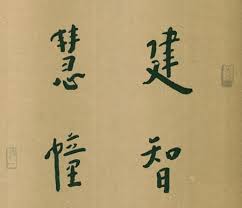 建智
慧幢